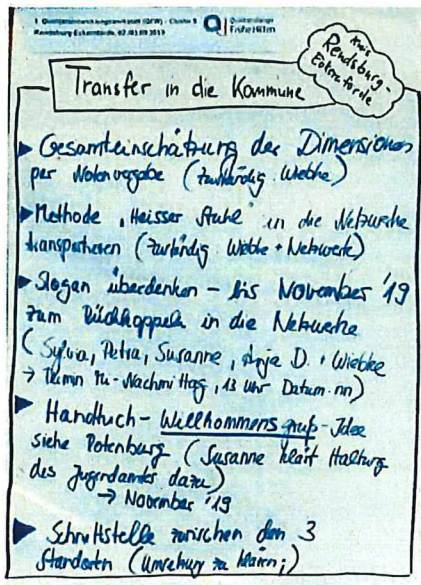 1. Qualitätsentwicklungswerkstatt (QEW) - Cluster 5
Rendsburg Eckernförde, 02./03.09.2019
Qualitätsdialoge
Frühe Hilfen
Kreis
Rendsburg-
Eckernförde
Transfer in die Kommune
▶ Gesamteinschätzung der Dimensionen
per Notenvergabe (zuständig Wiebke)
▶ Methode „Heisser Stuhl" in die Netzwerke
transportieren (zuständig Wiebke + Netzwerk)
▶ Slogan überdenken - bis November '19
zum Rückkoppeln in die Netzwerke
(Sylvia, Petra, Susanne, Anja D. + Wiebke
→ Termin -Nachmittag, 13 Uhr Datum nn)
▶ Handtuch - Willkommensgruß - Idee
siehe Rotenburg (Susanne klärt Haltung
des Jugendamtes dazu)
→ November '19
▶ Schnittstelle zwischen den 3
Standorten (Umsetzung zu klären;)